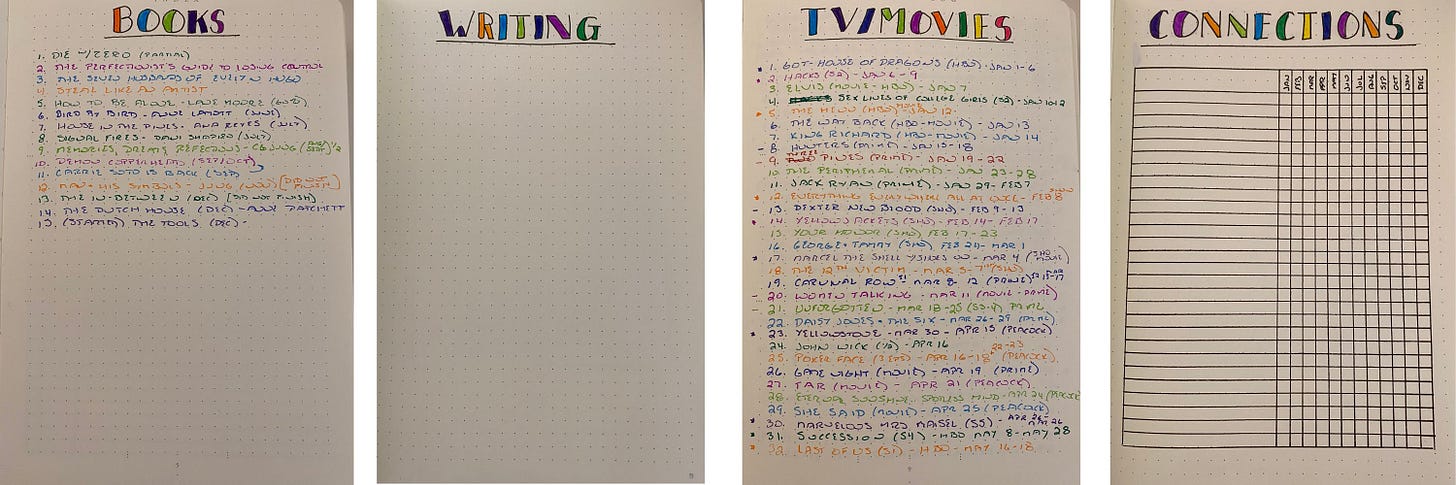 BOOKS
1. DIE W/ ZERO (PARTIAL)
2. THE PERFECTIONIST'S GUIDE TO LOSING CONTROL
3. THE SEVEN HUSBANDS OF EVELYN HUGO
4. STEAL LIKE AN ARTIST
5. HOW TO BE ALONE - LANE MOORE
6. BIRD BY BIRD - ANNE LAMOTT (JUNE)
7. HOUSE IN THE PINES - ANA REYES (JULY)
8. SIGNAL FIRES - DANI SHAPIRO (JULY)
9. MEMORIES, DREAMS, REFLECTIONS - CG JUNG 1/2
10. DEMON COPPERHEAD (SEPT/OCT)
11. CARRIE SOTO IS BACK (SEP)
12. MAN + HIS SYMBOLS - JUNG (NOV) [DID NOT FINISH]
13. THE IN-BETWEEN (DEC) [DID NOT FINISH]
14. THE DUTCH HOUSE (DEC) - ANNE PATCHETT
15. (STARTED) THE TOOLS (DEC) -
WRITING
TV/MOVIES
1. GOT - HOUSE OF DRAGONS (HBO) - JAN 1-6
2. HACKS (S2) - JAN 6-9
3. ELVIS (MOVIE - HBO) - JAN 7
4. SEX LIVES OF COLLEGE GIRLS (S2) - JAN
5. THE MENU (HBO) MOVIE JAN 12
6. THE WAY BACK (HBO - MOVIE) - JAN 13
7. KING RICHARD (HBO - MOVIE) - JAN 14
8. HUNTERS (PRIME) - JAN 15-18
9. THREE PINES (PRIME) - JAN 19-22
10. THE PERIPHERAL (PRIME) - JAN 23-28
11. JACK RYAN (PRIME) - JAN 29 - FEB 7
12. EVERYTHING EVERYWHERE ALL AT ONCE - FEB 8
13. DEXTER NEW BLOOD (SHO) - FEB 9-13
14. YELLOWJACKETS (SHO) - FEB 14 - FEB 17
15. YOUR HONOR (SHO) FEB 17-23
16. GEORGE + TAMMY (SHO) FEB 24 - MAR 1
17. MARCEL THE SHELL W/SHOES ON - MAR 4 (SHO - MOVIE)
18. THE 12TH VICTIM - MAR 5-7 (SHO)
19. CARNIVAL ROW S1 - MAR 8-12 (PRIME) S2 MAR 13-17
20. WOMEN TALKING - MAR 11 (MOVIE - PRIME)
21. UNFORGOTTEN - MAR 18-25 (S3-4) PRIME
22. DAISY JONES + THE SIX - MAR 26-29 (PRIME)
23. YELLOWSTONE - MAR 30 - APR 15 (PEACOCK)
24. JOHN WICK - APR 16
25. POKER FACE (3 EPS) - APR 16-18 22-23 (PEACOCK)
26. GAME NIGHT (MOVIE) - APR 19 (PRIME)
27. TAR (MOVIE) - APR 21 (PEACOCK)
28. ETERNAL SUNSHINE SPOTLESS MIND - APR 24 (PEACOCK)
29. SHE SAID (MOVIE) - APR 25 (PEACOCK)
30. MARVELOUS MRS MAISEL (S5) - APR 26 - MAY 26
31. SUCCESSION (S4) - HBO MAY 8 - MAY 28
32. LAST OF US (S1) - HBO - MAY 16-18
CONNECTIONS
JAN FEB MAR APR MAY JUN JUL AUG SEP OCT NOV DEC